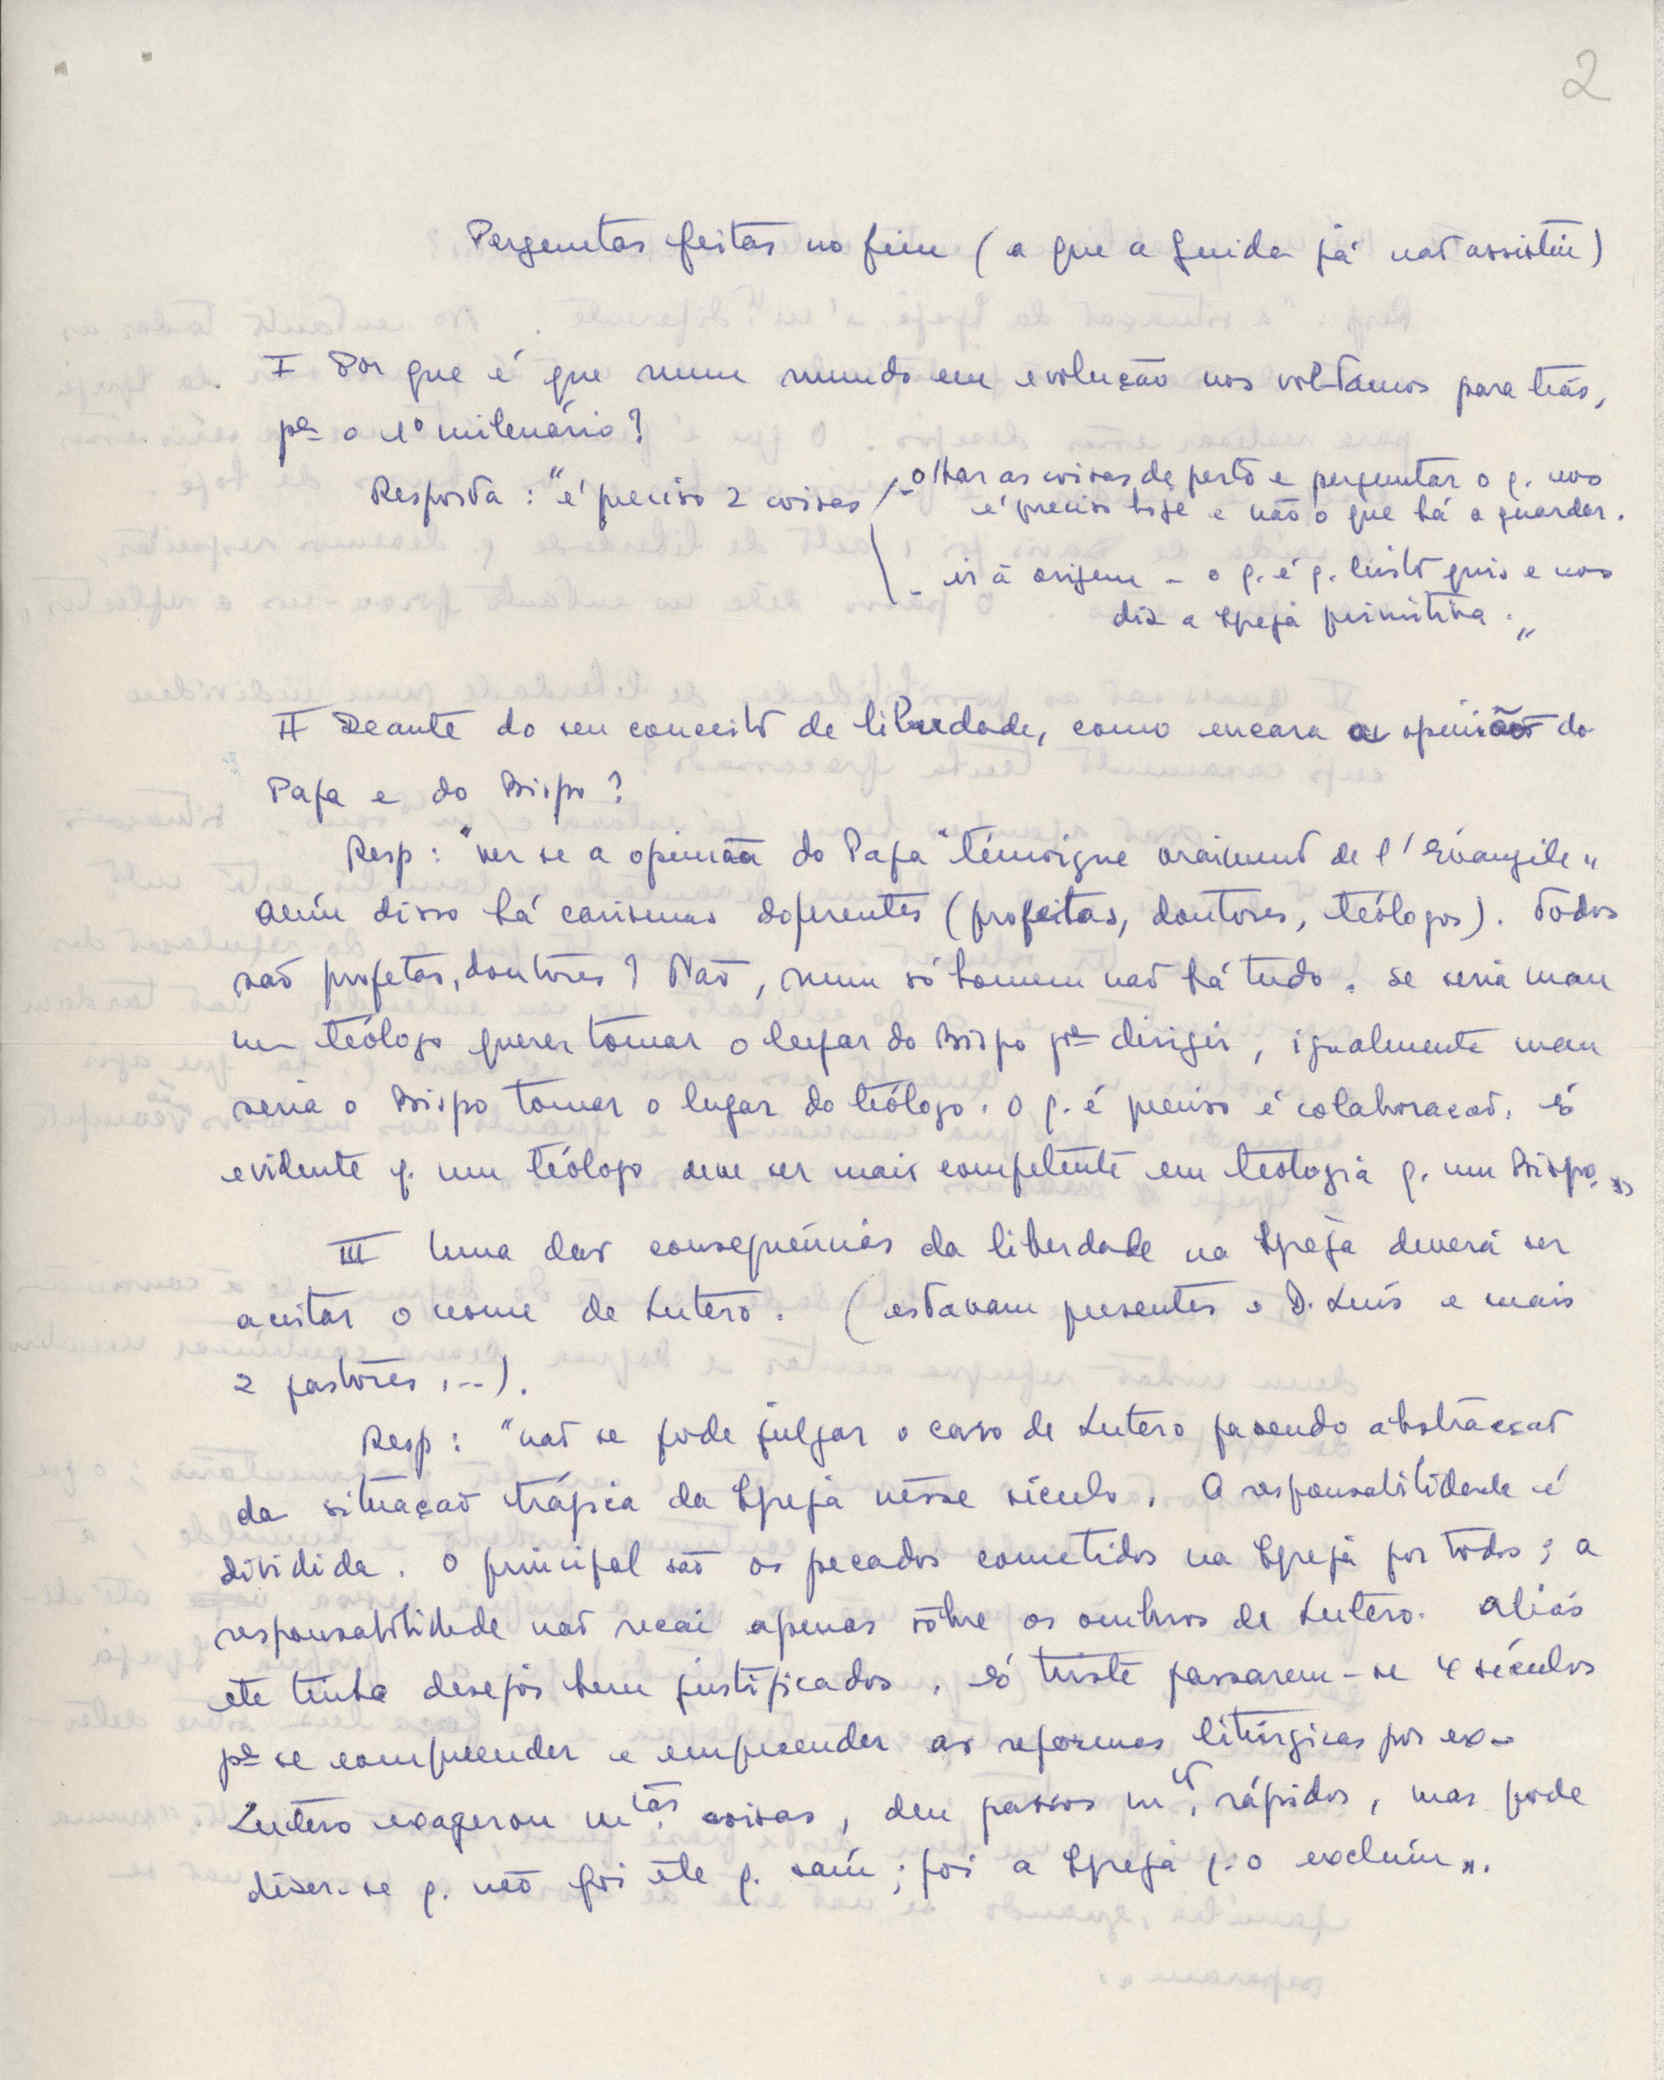 2
Perguntas feitas no fim (a que a Guida já não assistiu)
I Por que é que num mundo em evolução nos voltamos para trás,
pª o 1º milenário?
Resposta: "é preciso 2 coisas - olhar as coisas de perto e perguntar o q. nos
é preciso hoje e não o que há a guardar.
- ir à origem - o q. é q. Cristo quis e nos
diz a Igreja primitiva."
II Deante do seu conceito de liberdade, como encara a opinião do
Papa e do Bispo?
Resp: "ver se a opinião do Papa "témoigne vraiment de l'Évangile"
Além disso há carismas diferentes (profeitas, doutores, teólogos). Todos
são profetas, doutores? Não, num só homem não há tudo. Se seria mau
um teólogo querer tomar o lugar do Bispo pª dirigir, igualmente mau
seria o Bispo tomar o lugar do teólogo. O q. é preciso é colaboração. É
evidente q. um teólogo deve ser mais competente em teologia q. um Bispo."
III Uma das consequências da liberdade na Igreja deverá ser
aceitar o nome de Lutero. (estavam presentes o D. Luís e mais
2 pastores ...).
Resp: "não se pode julgar o caso de Lutero fazendo abstracção
da situação trágica da Igreja nêsse século. A responsabilidade é
dividida. O principal são os pecados cometidos na Igreja por todos; a
responsabilidade não recai apenas sôbre os ombros de Lutero. Aliás
ele tinha desejos bem justificados. É triste passarem-se 4 séculos
pª se compreender e empreender as reformas litúrgicas por ex-
Lutero exagerou m.tas coisas, deu passos m.to rápidos, mas pode
dizer-se q. não foi êle q. saíu; foi a Igreja q. o excluíu".